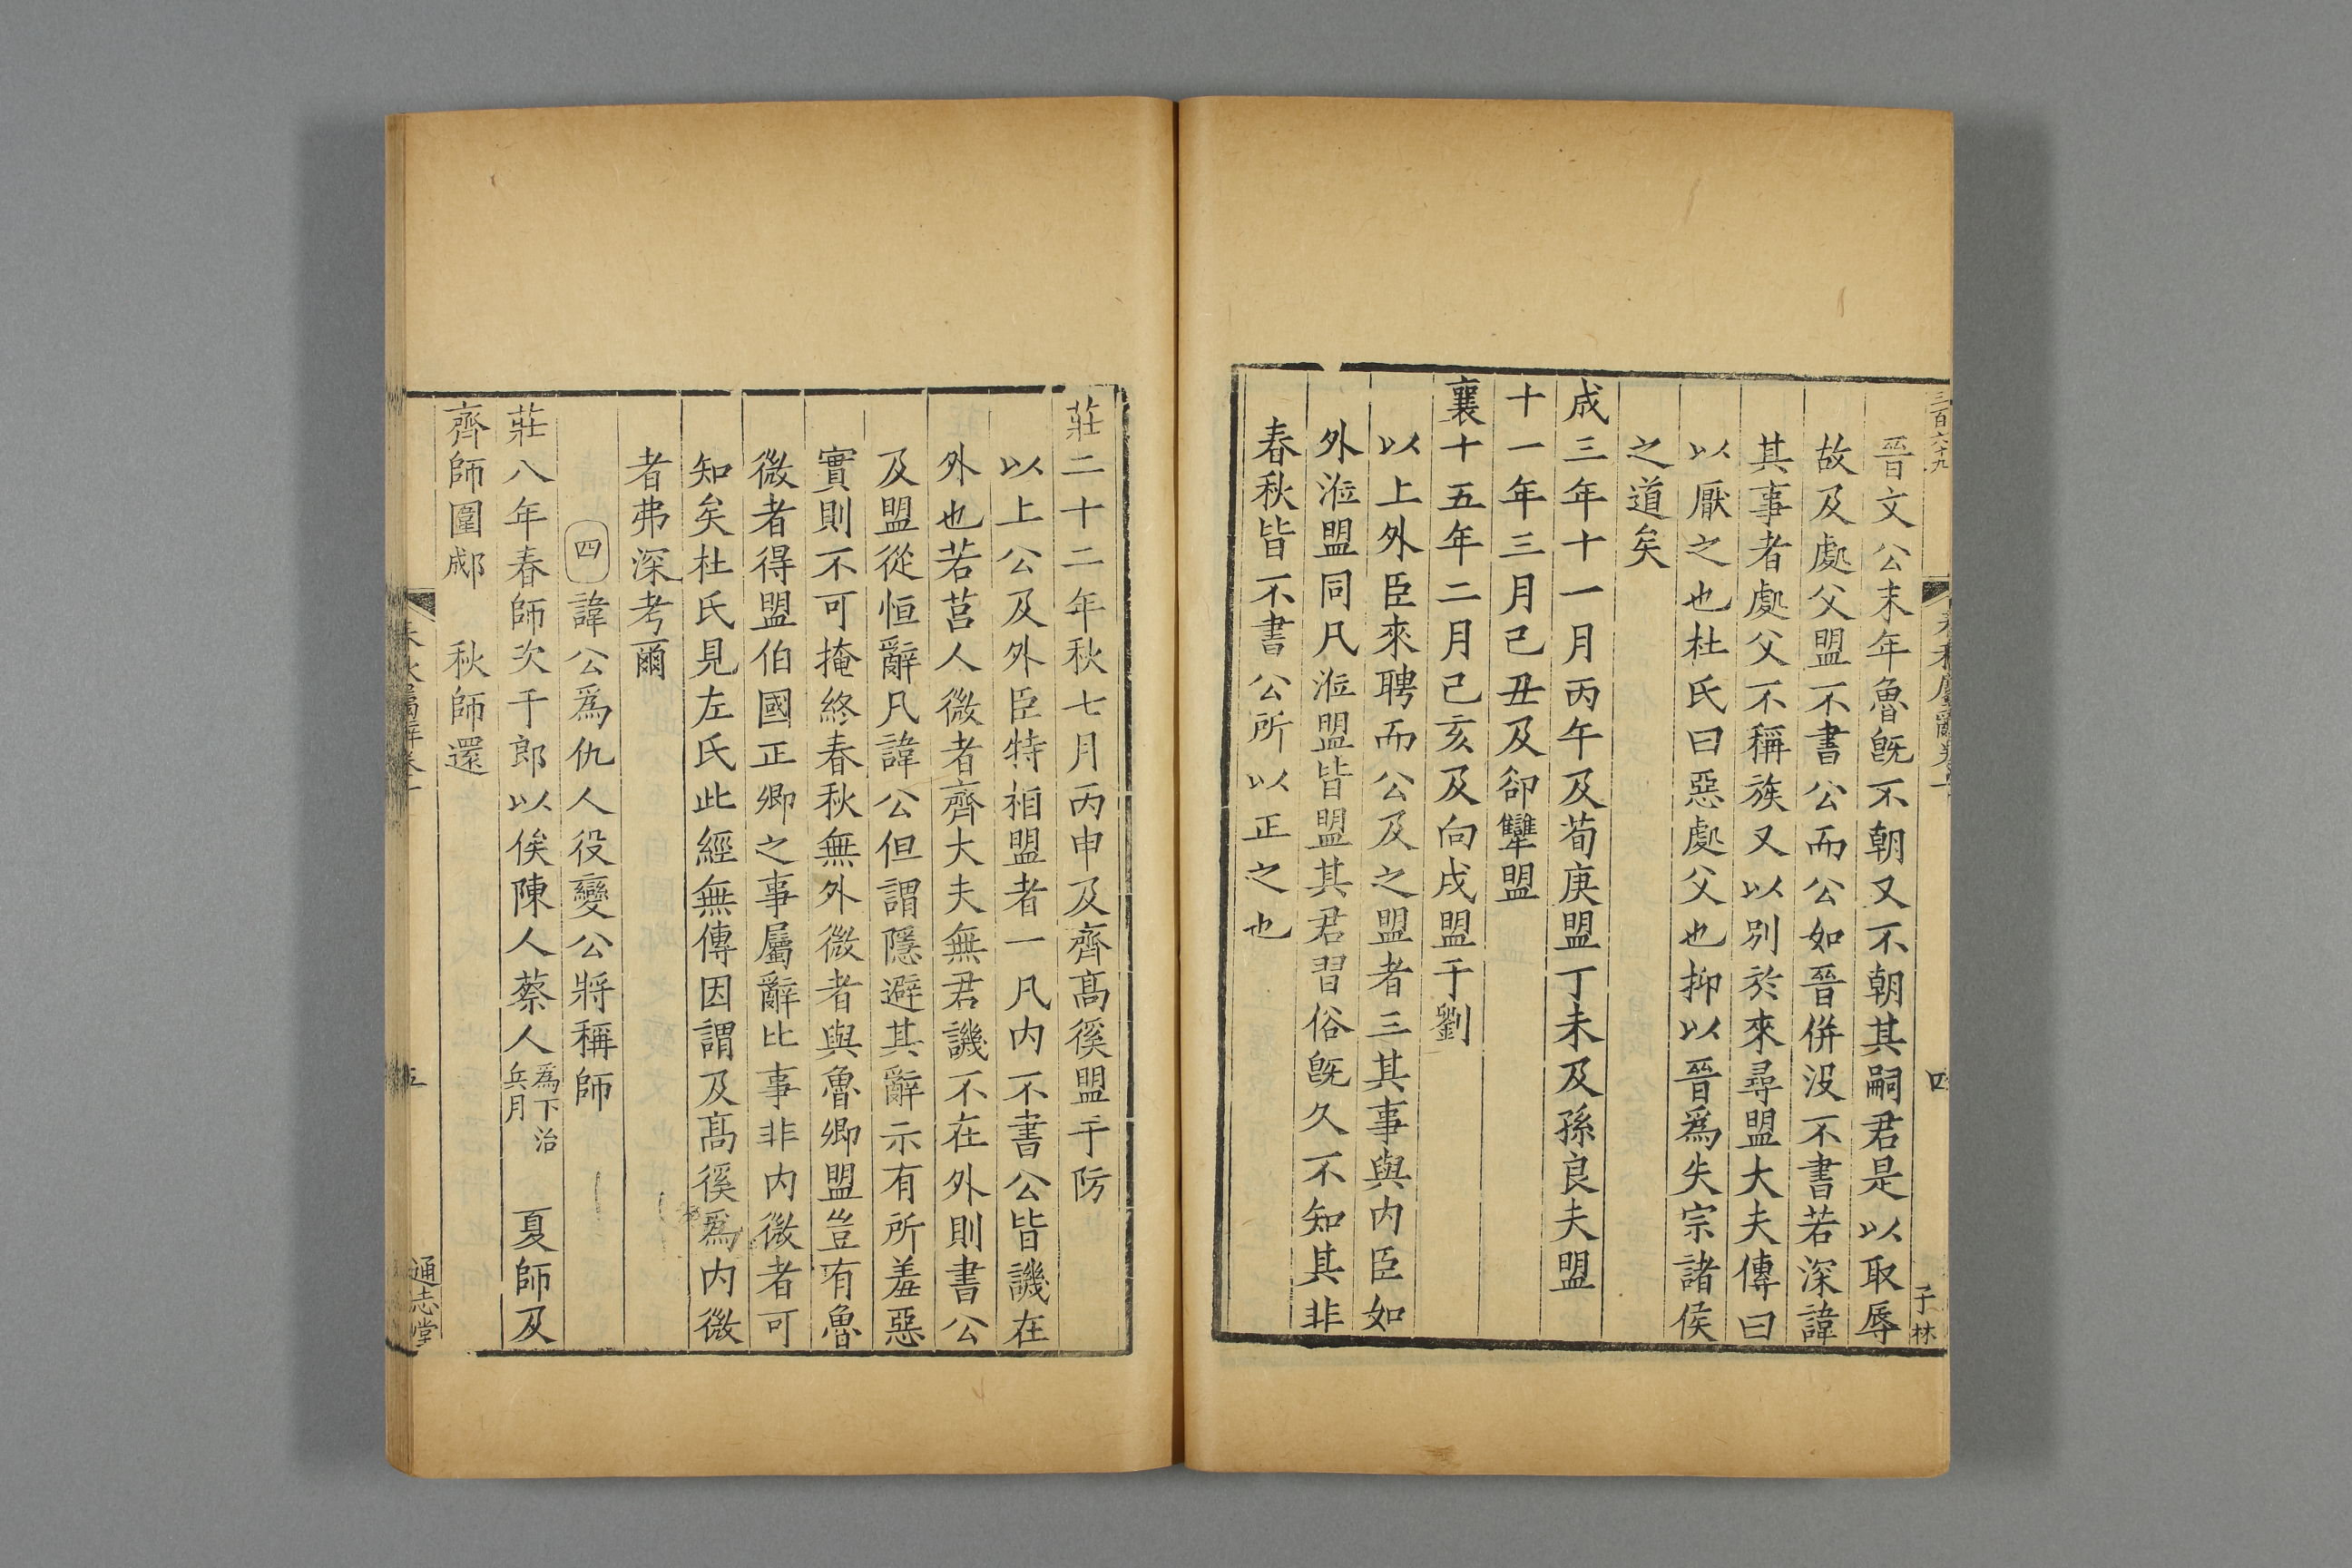 三百六十九
四
子林
晉文公末年魯旣不朝又不朝其嗣君是以取辱
故及處父盟不書公而公如晉併没不書若深諱
其事者處父不稱族又以别於來尋盟大夫傳曰
以厭之也杜氏曰惡處父也抑以晉爲失宗諸侯
之道矣
成三年十一月丙午及荀庚盟丁未及孫良夫盟
十一年三月己丑及郤犫盟
襄十五年二月己亥及向戌盟于劉
以上外臣來聘而公及之盟者三其事與内臣如
外涖盟同凡涖盟皆盟其君習俗旣久不知其非
春秋皆不書公所以正之也
莊二十二年秋七月丙申及齊髙徯盟于防
以上公及外臣特相盟者一凡内不書公皆譏在
外也若莒人微者齊大夫無君譏不在外則書公
及盟從恒辭凡諱公但謂隱避其辭示有所羞惡
實則不可掩終春秋無外微者與魯卿盟豈有魯
微者得盟伯國正卿之事屬辭比事非内微者可
知矣杜氏見左氏此經無傳因謂及髙徯爲内微
者弗深考爾
四 諱公爲仇人役變公將稱師
莊八年春師次于郎以俟陳人蔡人爲下治兵月 夏師及
齊師圍郕 秋師還
春秋屬辭卷十
五
通志堂